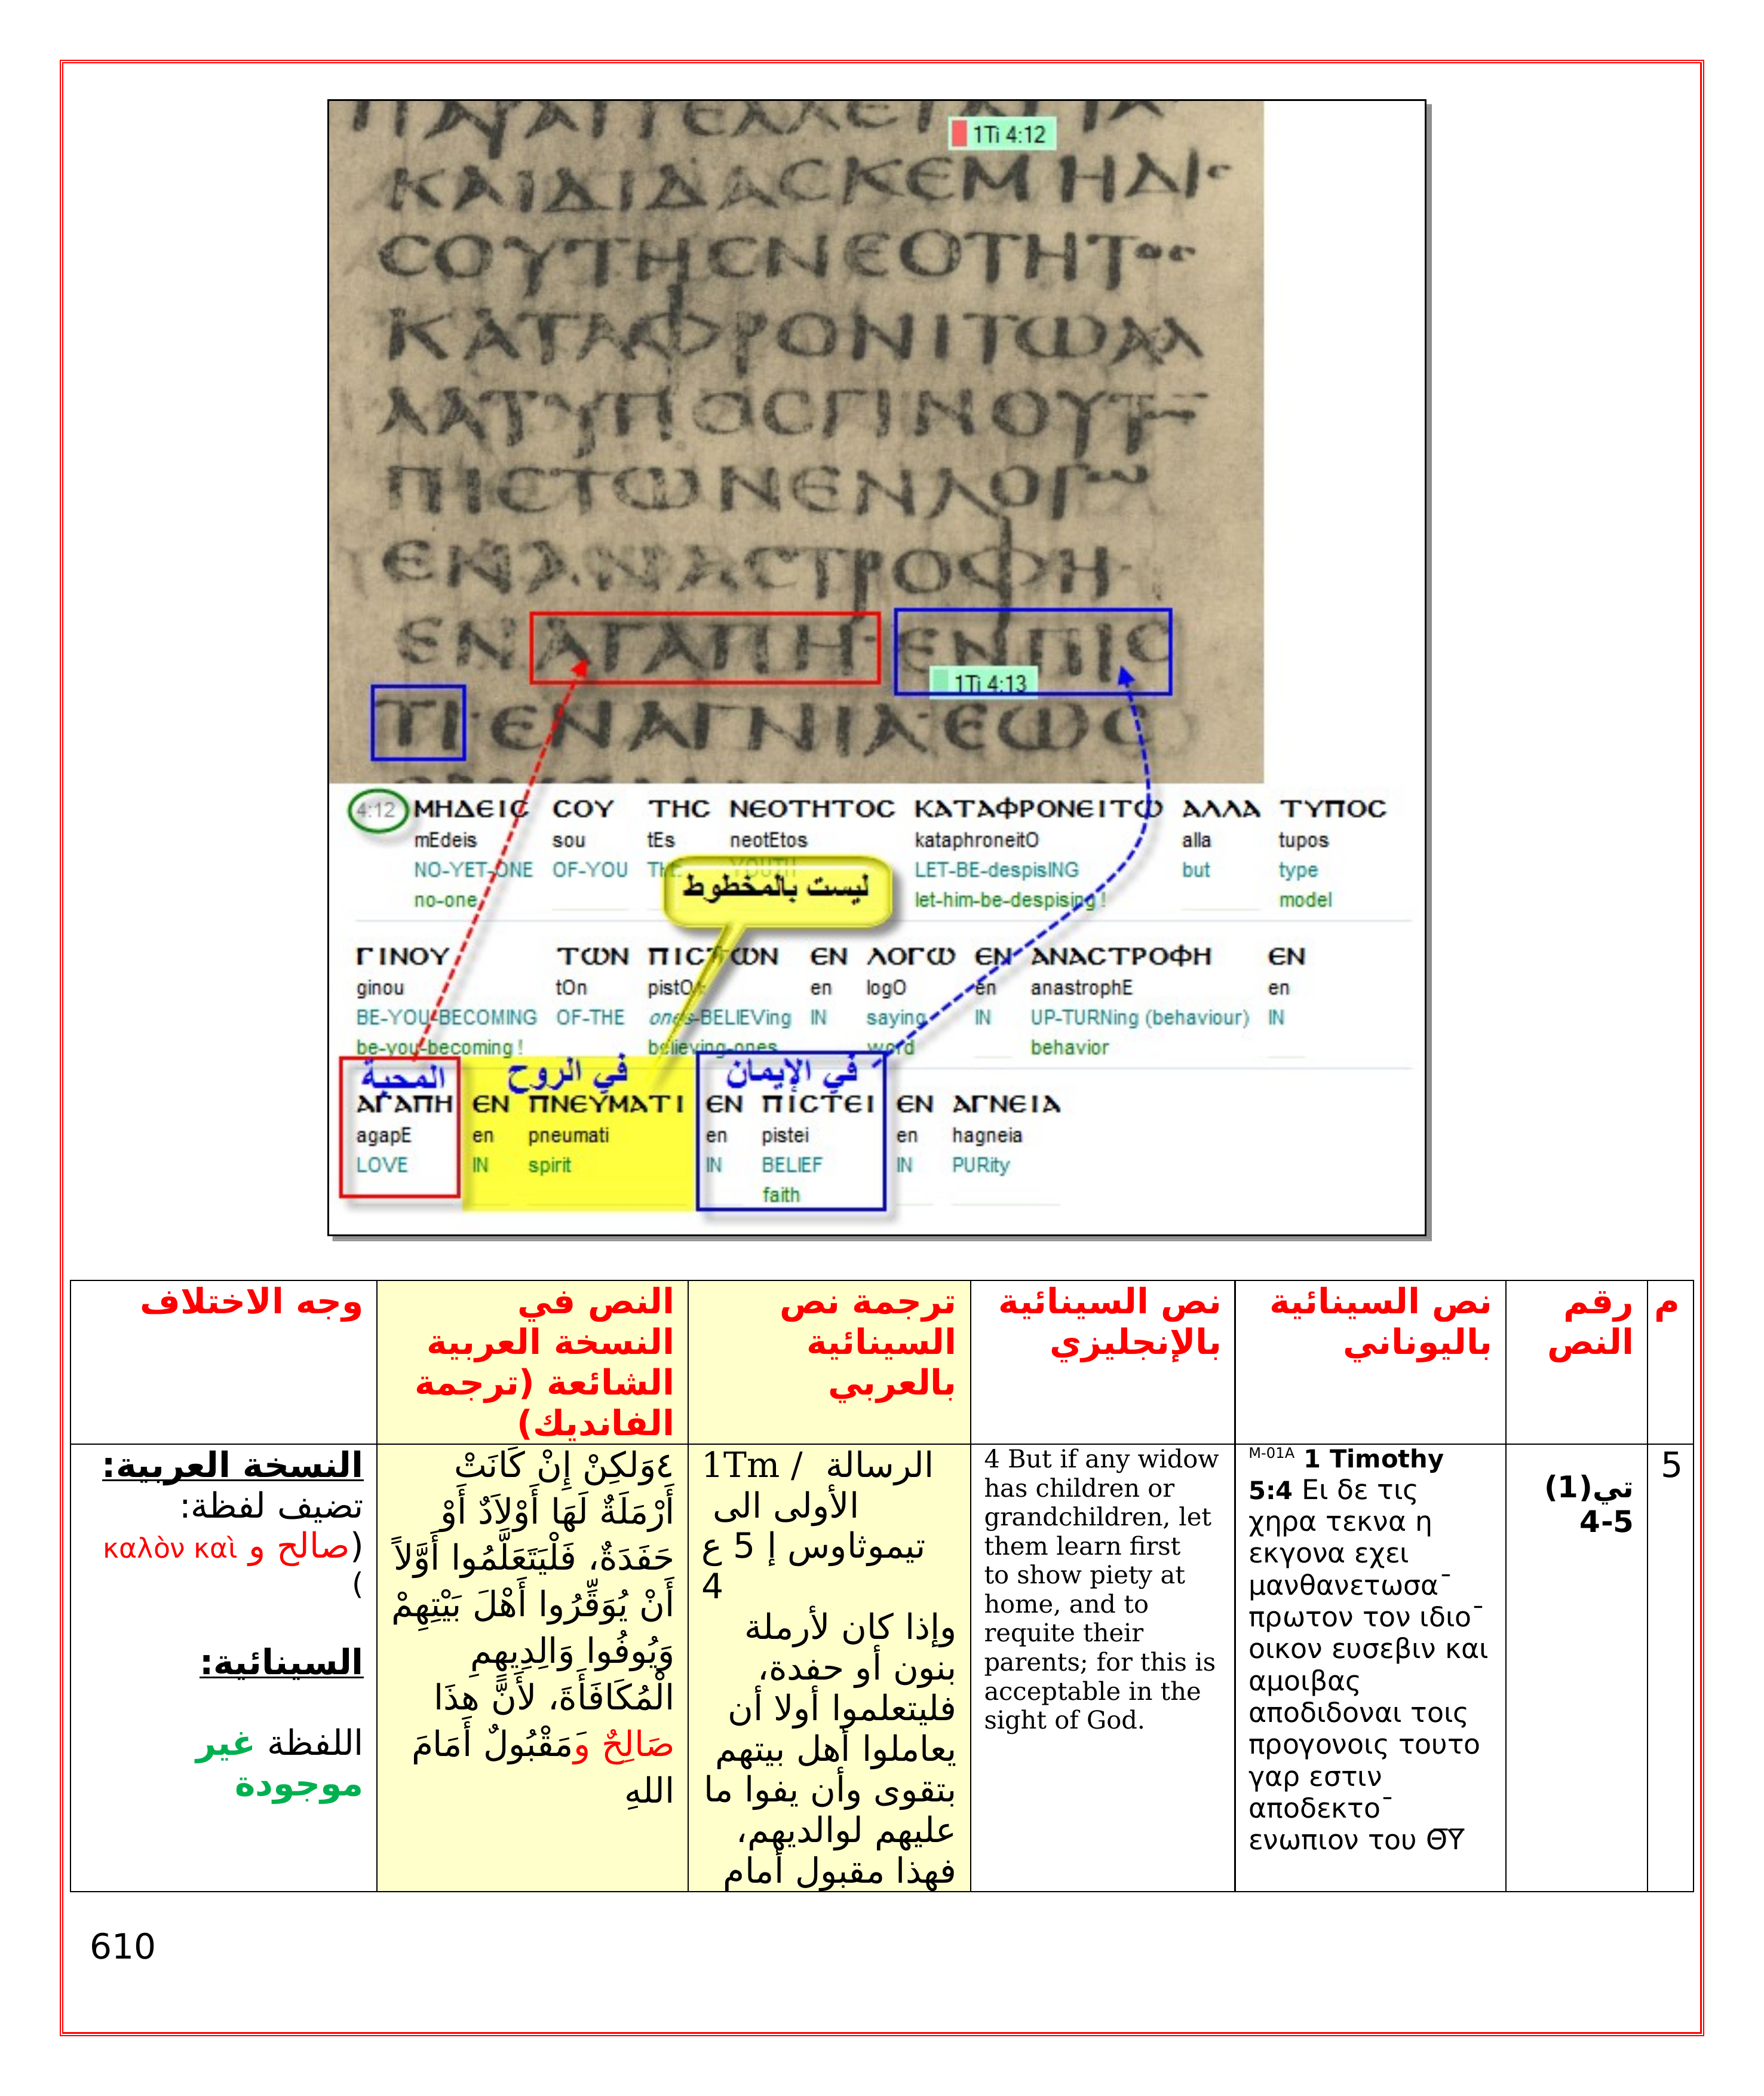 ΠΑΡΑΓΓΕΛΛΕΤΑΥΤΑ
1Ti 4:12
ΚΑΙΔΙΔΑСΚΕΜΗΔΙС
СΟΥΤΗСΝΕΟΤΗΤΟС
ΚΑΤΑΦΡΟΝΙΤΩΑΛ
ΛΑΤΥΠΟСΓΙΝΟΥΤΩ¯
ΠΙСΤΩΝΕΝΛΟΓΩ
ΕΝΑΝΑСΤΡΟΦΗ·
ΕΝΑΓΑΠΗ·ΕΝΠΙС
1Ti 4:13
ΤΙ·ΕΝΑΓΝΙΑ·ΕΩС
4:12 ΜΗΔΕΙС СΟΥ ΤΗС ΝΕΟΤΗΤΟС ΚΑΤΑΦΡΟΝΕΙΤΩ ΑΛΛΑ ΤΥΠΟС
mEdeis sou tEs neotEtos kataphroneitO alla tupos
NO-YET-ONE OF-YOU THE YOUTH LET-BE-despisING but type
no-one let-him-be-despising ! model
ليست بالمخطوط
ΓΙΝΟΥ ΤΩΝ ΠΙСΤΩΝ ΕΝ ΛΟΓΩ ΕΝ ΑΝΑСΤΡΟΦΗ ΕΝ
ginou tOn pistOn en logO en anastrophE en
BE-YOU-BECOMING OF-THE ones-BELIEVing IN saying IN UP-TURNing (behaviour) IN
be-you-becoming ! believing-ones word behavior
المحبة في الروح في الإيمان
ΑΓΑΠΗ ΕΝ ΠΝΕΥΜΑΤΙ ΕΝ ΠΙСΤΕΙ ΕΝ ΑΓΝΕΙΑ
agapE en pneumati en pistei en hagneia
LOVE IN spirit IN BELIEF IN PURity
faith
م
رقم
النص
نص السينائية
باليوناني
نص السينائية
بالإنجليزي
ترجمة نص
السينائية
بالعربي
النص في
النسخة العربية
الشائعة (ترجمة
الفانديك)
وجه الاختلاف
5
تي(1)
4-5
M-01A 1 Timothy
5:4 Ει δε τις
χηρα τεκνα η
εκγονα εχει
μανθανετωσα¯
πρωτον τον ιδιο¯
οικον ευσεβιν και
αμοιβας
αποδιδοναι τοις
προγονοις τουτο
γαρ εστιν
αποδεκτο¯
ενωπιον του Θ̅Υ̅
4 But if any widow
has children or
grandchildren, let
them learn first
to show piety at
home, and to
requite their
parents; for this is
acceptable in the
sight of God.
1Tm / الرسالة
الأولى الى
تيموثاوس إ 5 ع
4
وإذا كان لأرملة
بنون أو حفدة،
فليتعلموا أولا أن
يعاملوا أهل بيتهم
بتقوى وأن يفوا ما
عليهم لوالديهم،
فهذا مقبول أمام
٤وَلكِنْ إِنْ كَانَتْ
أَرْمَلَةٌ لَهَا أَوْلاَدٌ أَوْ
حَفَدَةٌ، فَلْيَتَعَلَّمُوا أَوَّلاً
أَنْ يُوَقِّرُوا أَهْلَ بَيْتِهِمْ
وَيُوفُوا وَالِدِيهِمِ
الْمُكَافَأَةَ، لأَنَّ هذَا
صَالِحٌ وَمَقْبُولٌ أَمَامَ
اللهِ
النسخة العربية:
تضيف لفظة:
(صالح و καλὸν καὶ
)
السينائية:
اللفظة غير
موجودة
610